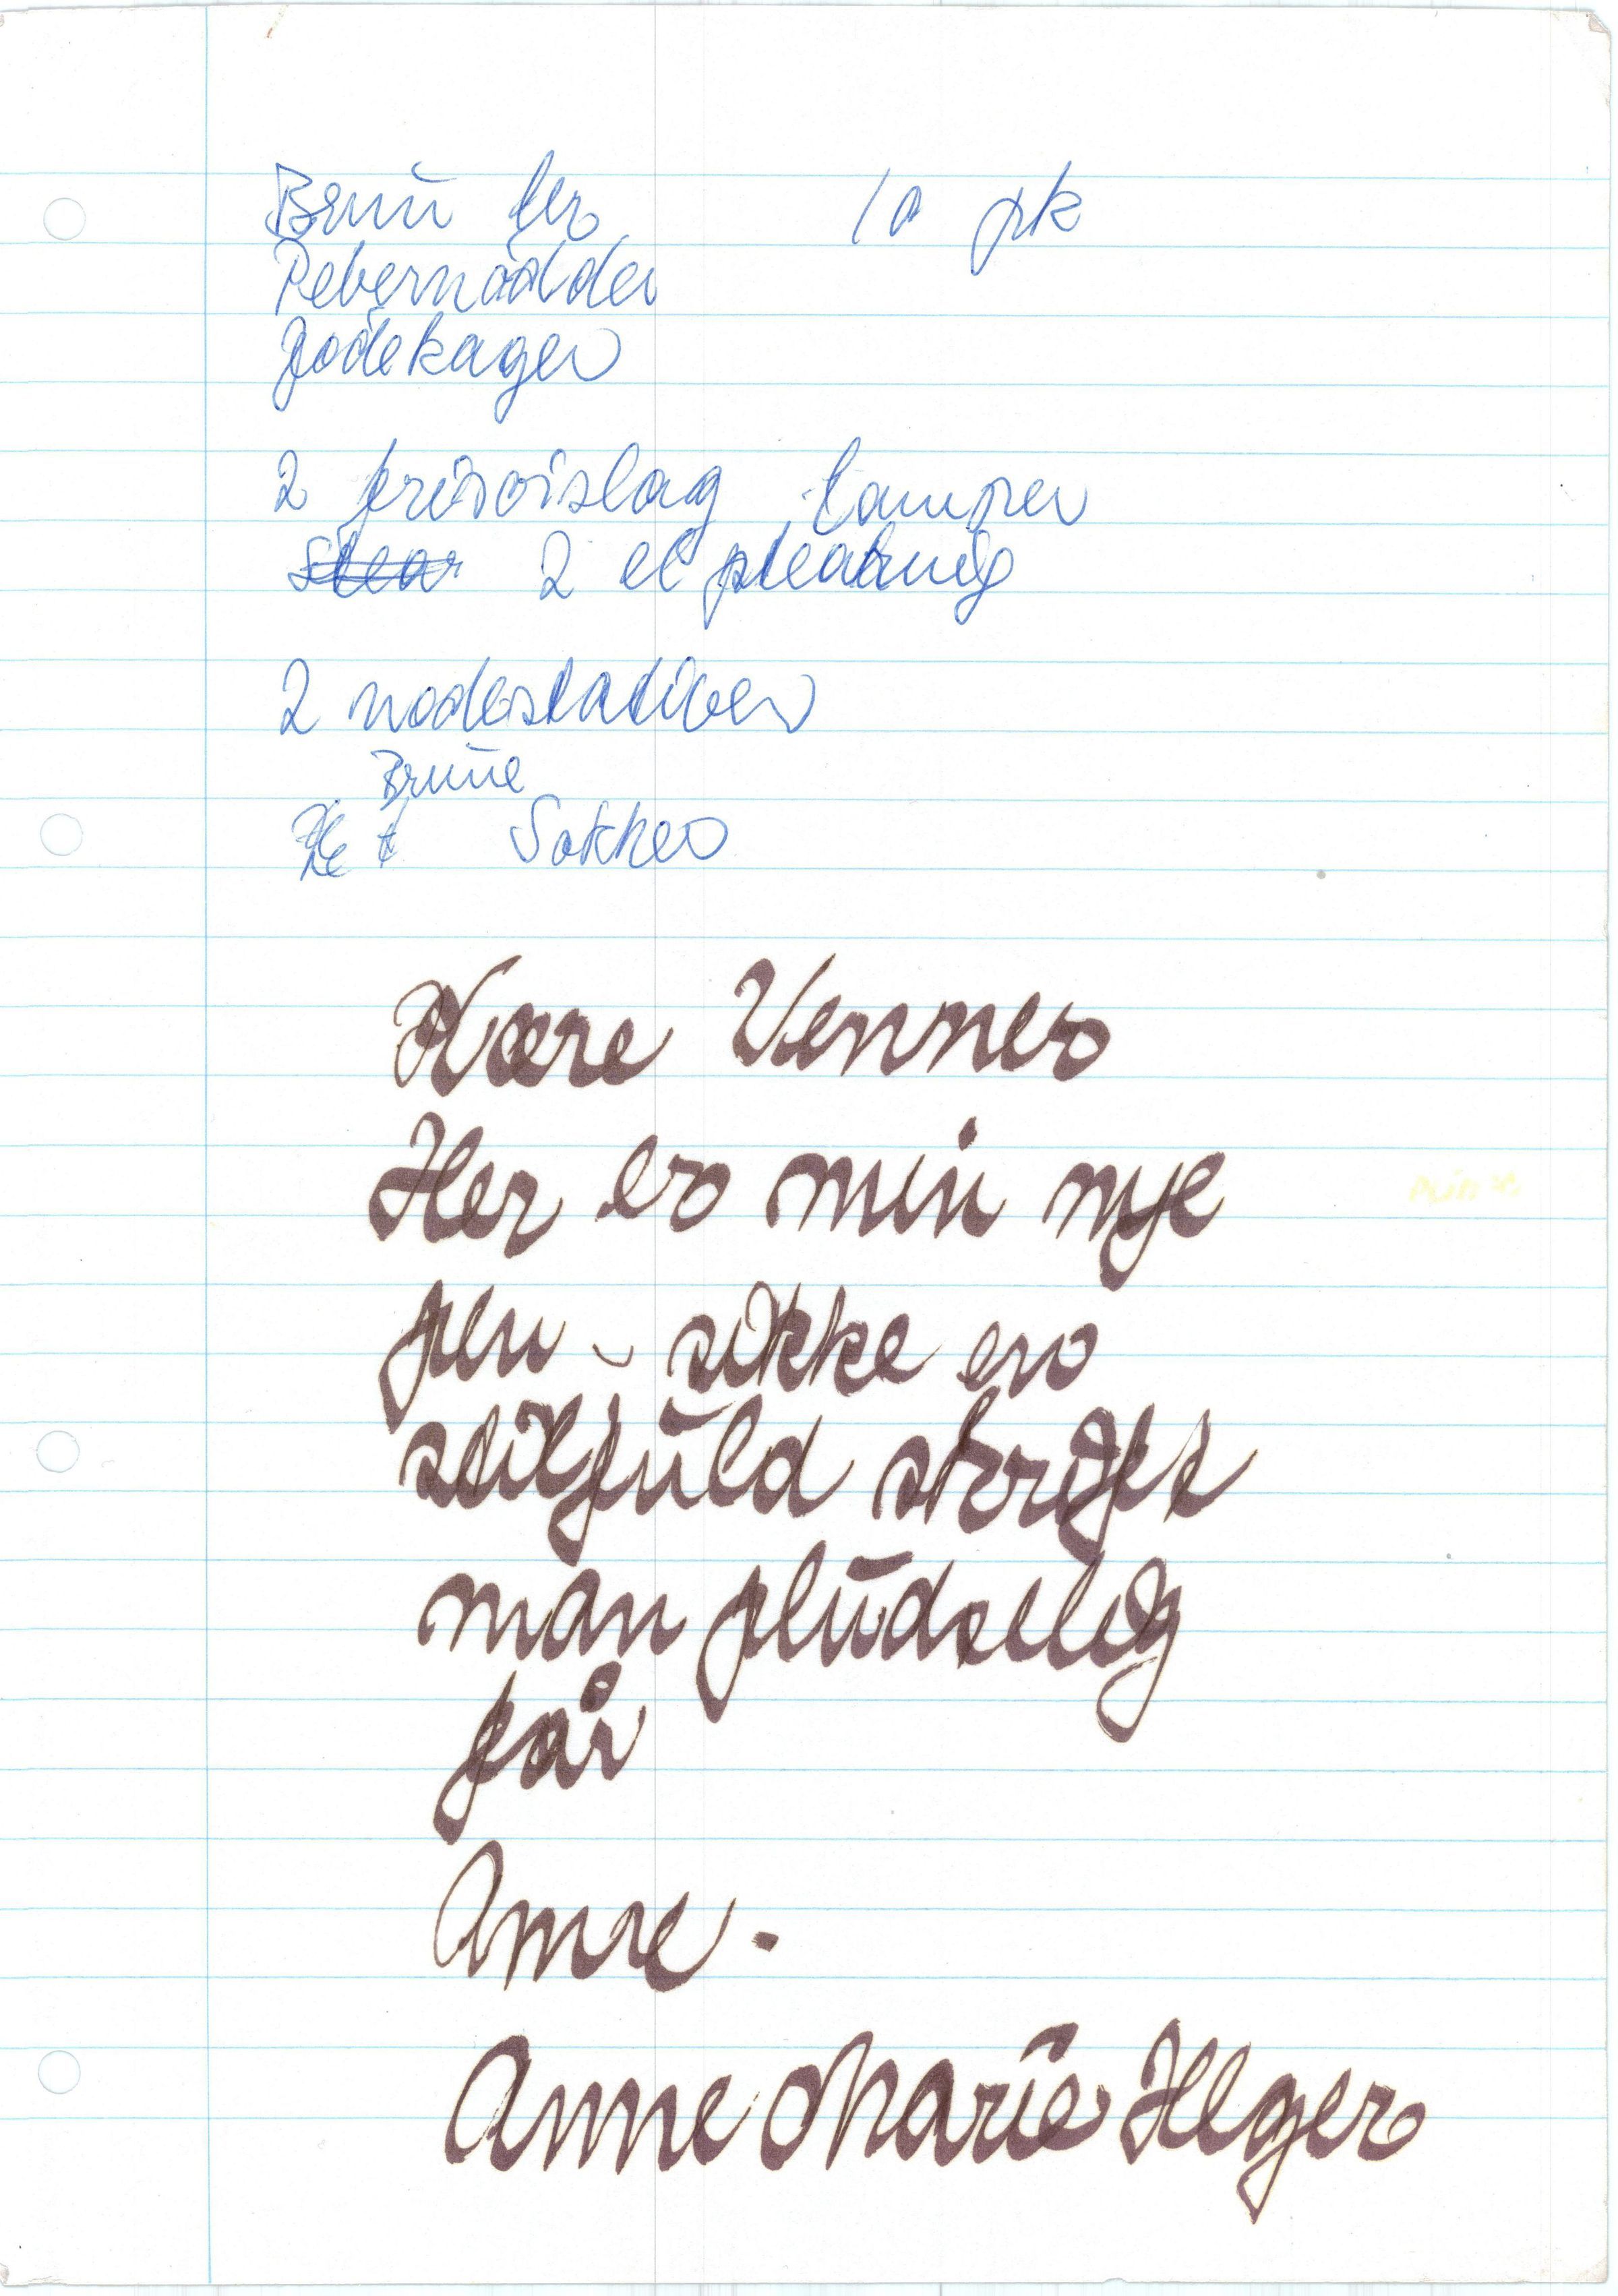 Brun ler 10 pk
Pebernødder
Jødekager
2 prisoislag lamper
2 el pleatnig
2 nodestativer
Brune
Sokker
Kære Venner
Her er min nye
pen - sikke en
stilfuld skrift
man pludselig
får
Anne.
Anne Marie Helger